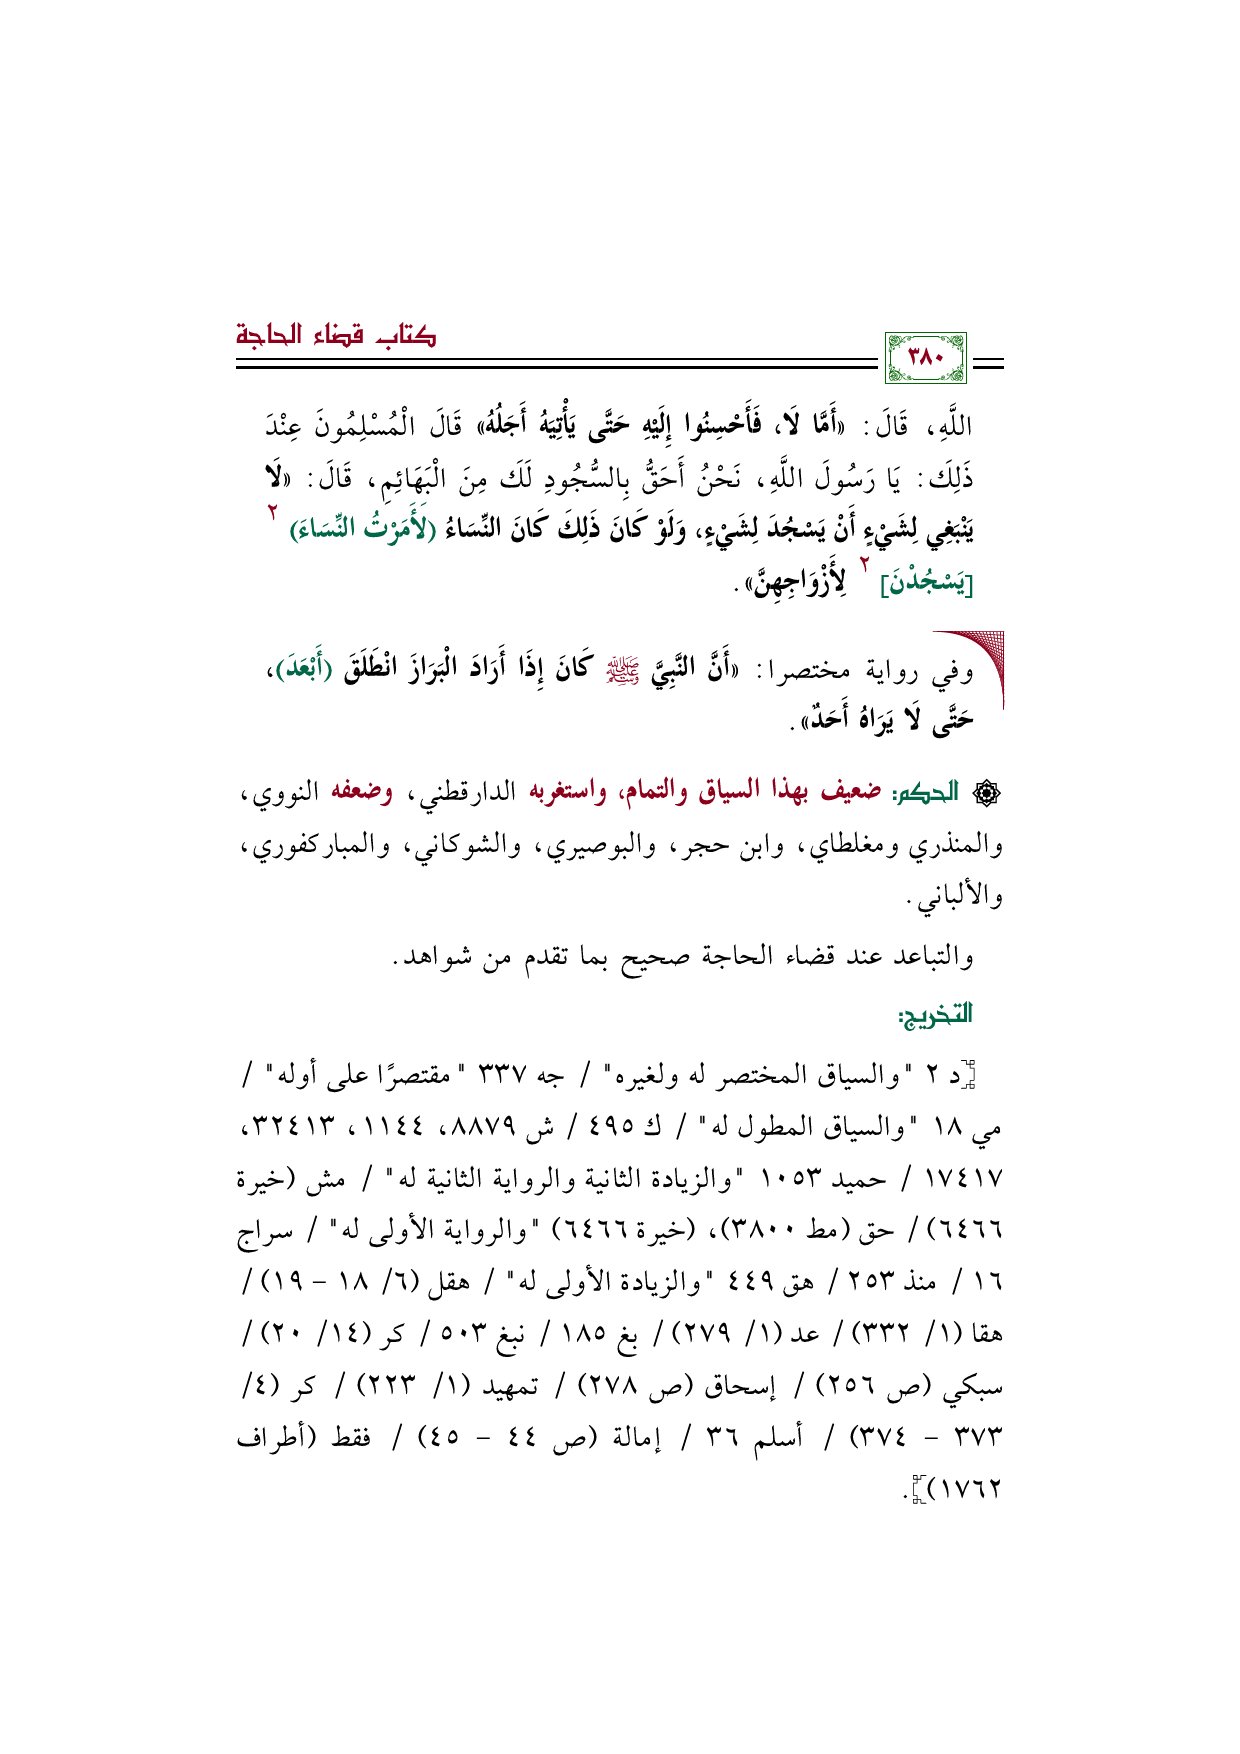 كتاب قضاء الحاجة
٣٨٠
اللَّهِ، قَالَ: «أَمَّا لَا، فَأَحْسِنُوا إِلَيْهِ حَتَّى يَأْتِيَهُ أَجَلُهُ» قَالَ الْمُسْلِمُونَ عِنْدَ
ذَلِكَ: يَا رَسُولَ اللَّهِ، نَحْنُ أَحَقُّ بِالسُّجُودِ لَكَ مِنَ الْبَهَائِمِ، قَالَ: «لَا
يَنْبَغِي لِشَيْءٍ أَنْ يَسْجُدَ لِشَيْءٍ، وَلَوْ كَانَ ذَلِكَ كَانَ النِّسَاءُ (لَأَمَرْتُ النِّسَاءَ) ٢
[يَسْجُدْنَ] ٢ لِأَزْوَاجِهِنَّ».
وفي رواية مختصرا: «أَنَّ النَّبِيَّ ﷺ كَانَ إِذَا أَرَادَ الْبَرَازَ انْطَلَقَ (أَبْعَدَ)،
حَتَّى لَا يَرَاهُ أَحَدٌ».
الحكم: ضعيف بهذا السياق والتمام، واستغربه الدارقطني، وضعفه النووي،
والمنذري ومغلطاي، وابن حجر، والبوصيري، والشوكاني، والمباركفوري،
والألباني.
والتباعد عند قضاء الحاجة صحيح بما تقدم من شواهد.
التخريج:
[د ٢ "والسياق المختصر له ولغيره" / جه ٣٣٧ "مقتصرًا على أوله" /
مي ١٨ "والسياق المطول له" / ك ٤٩٥ / ش ٨٨٧٩، ١١٤٤، ٣٢٤١٣،
١٧٤١٧ / حميد ١٠٥٣ "والزيادة الثانية والرواية الثانية له" / مش (خيرة
٦٤٦٦) / حق (مط ٣٨٠٠)، (خيرة ٦٤٦٦) "والرواية الأولى له" / سراج
١٦ / منذ ٢٥٣ / هق ٤٤٩ "والزيادة الأولى له" / هقل (٦/ ١٨ - ١٩) /
هقا (١/ ٣٣٢) / عد (١/ ٢٧٩) / بغ ١٨٥ / نبغ ٥٠٣ / كر (١٤/ ٢٠) /
سبكي (ص ٢٥٦) / إسحاق (ص ٢٧٨) / تمهيد (١/ ٢٢٣) / كر (٤/
٣٧٣ - ٣٧٤) / أسلم ٣٦ / إمالة (ص ٤٤ - ٤٥) / فقط (أطراف
١٧٦٢)].